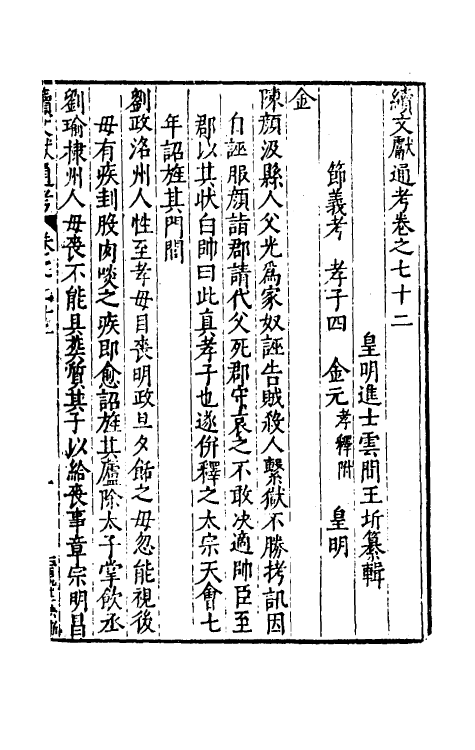 續文獻通考卷之七十二
皇明進士雲間王圻纂輯
節義考　孝子四　金元孝釋附　皇明
金
陳顏汲縣人父光爲家奴誣告賊殺人繫獄不勝拷訊因
自誣服顏詣郡請代父死郡守哀之不敢决適帥臣至
郡以其狀白帥曰此真孝子也遂併釋之太宗天會七
年詔旌其門閭
劉政洛州人性至孝母目喪明政旦夕餂之母忽能視後
母有疾刲股肉啖之疾即愈詔旌其廬除太子掌飲丞
劉瑜棣州人母喪不能具塟質其子以給喪事章宗明昌
續文獻通考
一